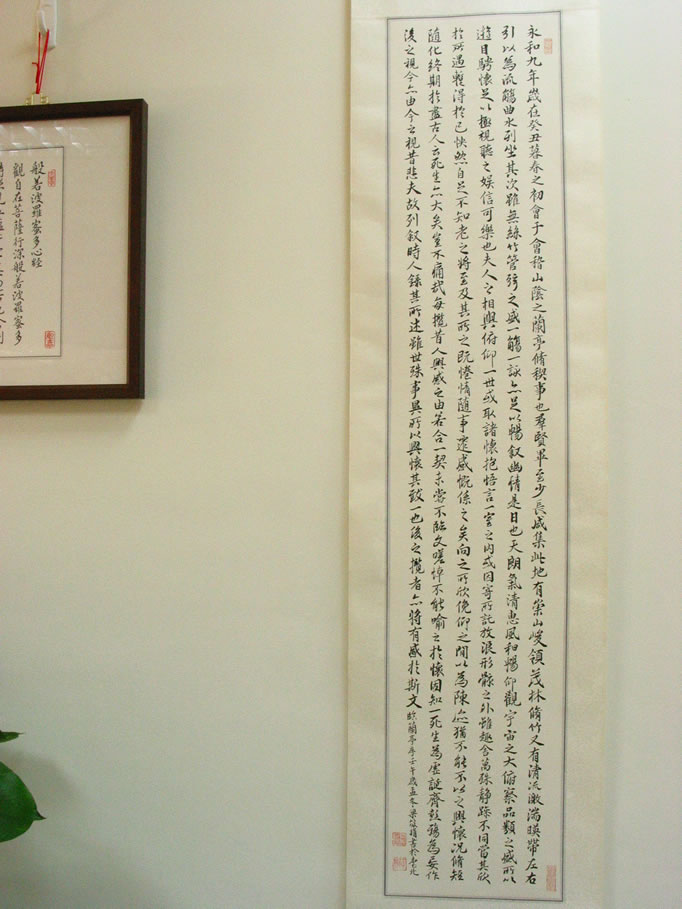 永和九年歲在癸丑暮春之初會于會稽山陰之蘭亭脩稧事也羣賢畢至少長咸集此地有崇山峻領茂林脩竹又有清流激湍暎帶左右
引以為流觴曲水列坐其次雖無絲竹管弦之盛一觴一詠亦足以暢叙幽情是日也天朗氣清惠風和暢仰觀宇宙之大俯察品類之盛所以
遊目騁懷足以極視聽之娛信可樂也夫人之相與俯仰一世或取諸懷抱悟言一室之內或因寄所託放浪形骸之外雖趣舍萬殊靜躁不同當其欣
於所遇暫得於己快然自足不知老之將至及其所之既惓情隨事遷感慨係之矣向之所欣俛仰之間以為陳迹猶不能不以之興懷況脩短
隨化終期於盡古人云死生亦大矣豈不痛哉每攬昔人興感之由若合一契未嘗不臨文嗟悼不能喻之於懷固知一死生為虛誕齊彭殤為妄作
後之視今亦由今之視昔悲夫故列叙時人錄其所述雖世殊事異所以興懷其致一也後之攬者亦將有感於斯文 臨蘭亭序壬午歲孟冬梁 書於臺北
般若波羅蜜多心經
觀自在菩薩行深般若波羅蜜多